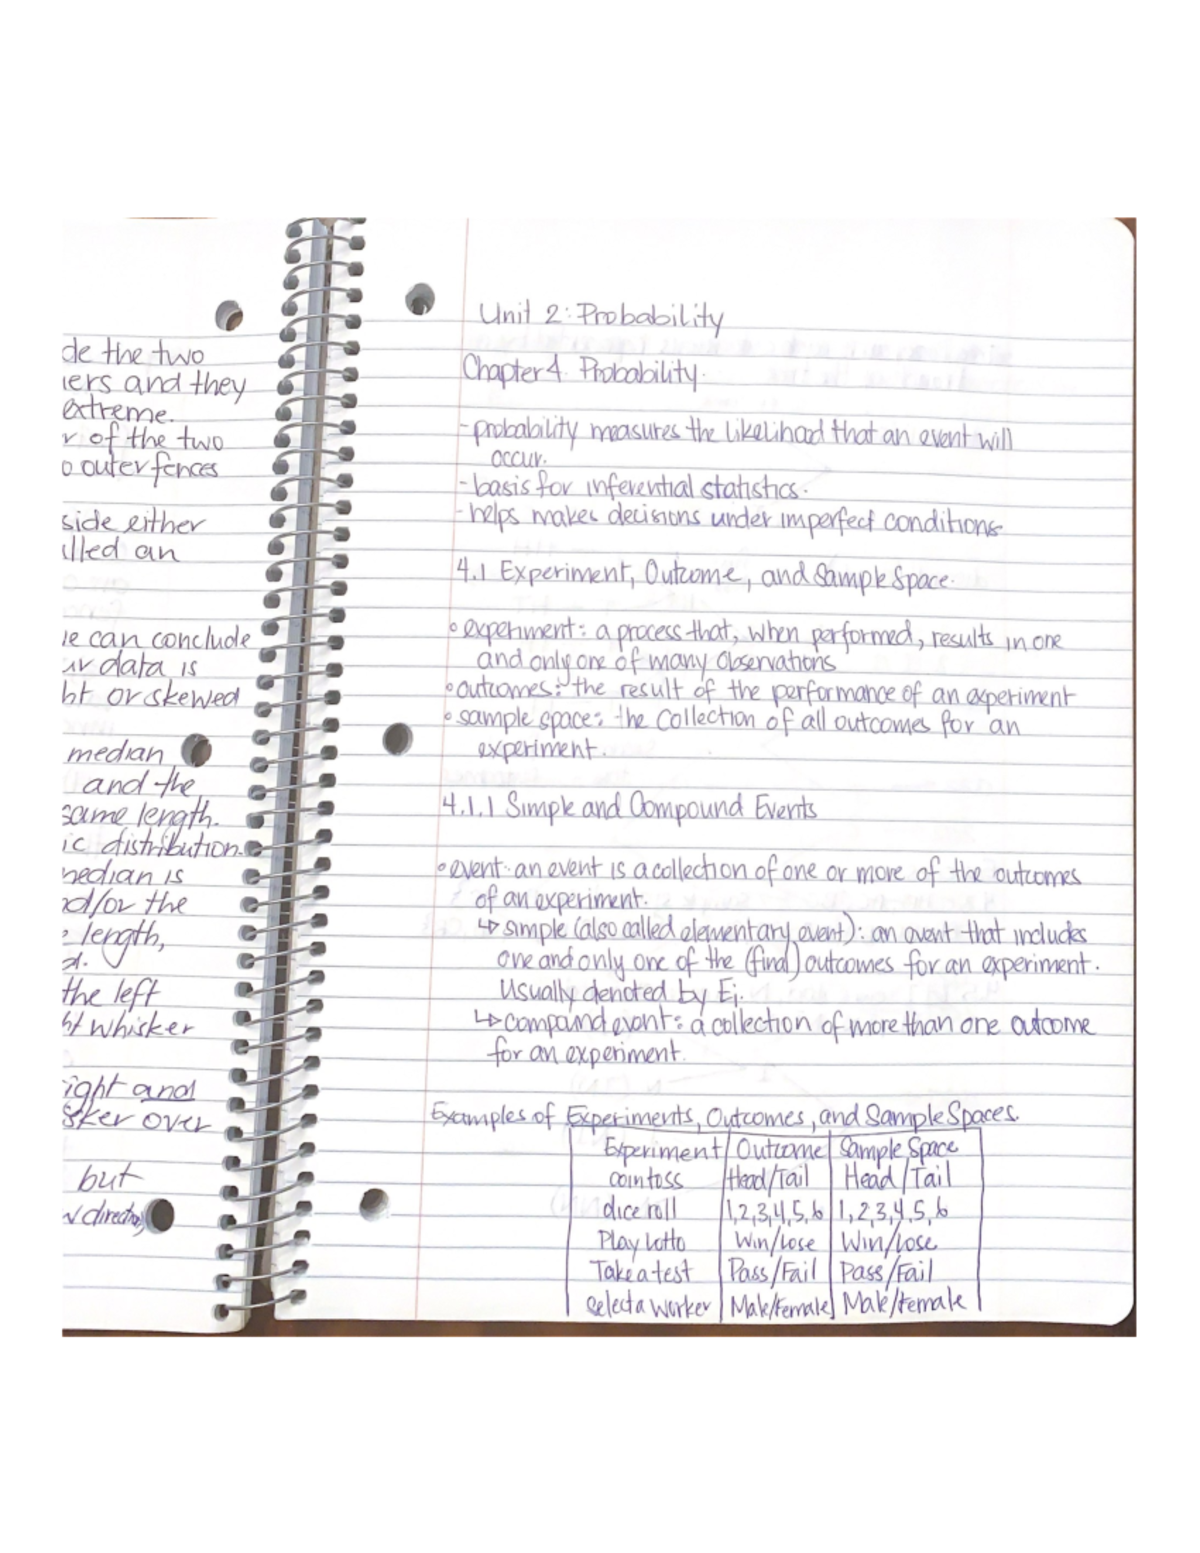 de the two
iers and they
extreme.
r of the two
o outer fences
side either
lled an
ie can conclude
ur data is
ht or skewed
median
and the
same length.
ic distribution.
nedian is
nd/or the
length,
d.
the left
ht whisker
ight and
sker over
but
w direction)
Unit 2: Probability
Chapter 4. Probability.
-probability measures the likelihood that an event will
occur.
-basis for inferential statistics.
-helps makes decisions under imperfect conditions
4.1 Experiment, Outcome, and Sample Space.
• experiment: a process that, when performed, results in one
and only one of many observations
• outcomes: the result of the performance of an experiment
• sample space: the collection of all outcomes for an
experiment.
4.1.1 Simple and Compound Events
• event: an event is a collection of one or more of the outcomes
of an experiment.
↳ simple (also called elementary event): an event that includes
one and only one of the (final) outcomes for an experiment.
Usually denoted by Ei.
↳ compound event: a collection of more than one outcome
for an experiment.
Examples of Experiments, Outcomes, and Sample Spaces.
Experiment | Outcome | Sample Space
coin toss | Head/Tail | Head/Tail
dice roll | 1,2,3,4,5,6 | 1,2,3,4,5,6
Play Lotto | Win/Lose | Win/Lose
Take a test | Pass/Fail | Pass/Fail
Select a worker | Male/Female | Male/Female